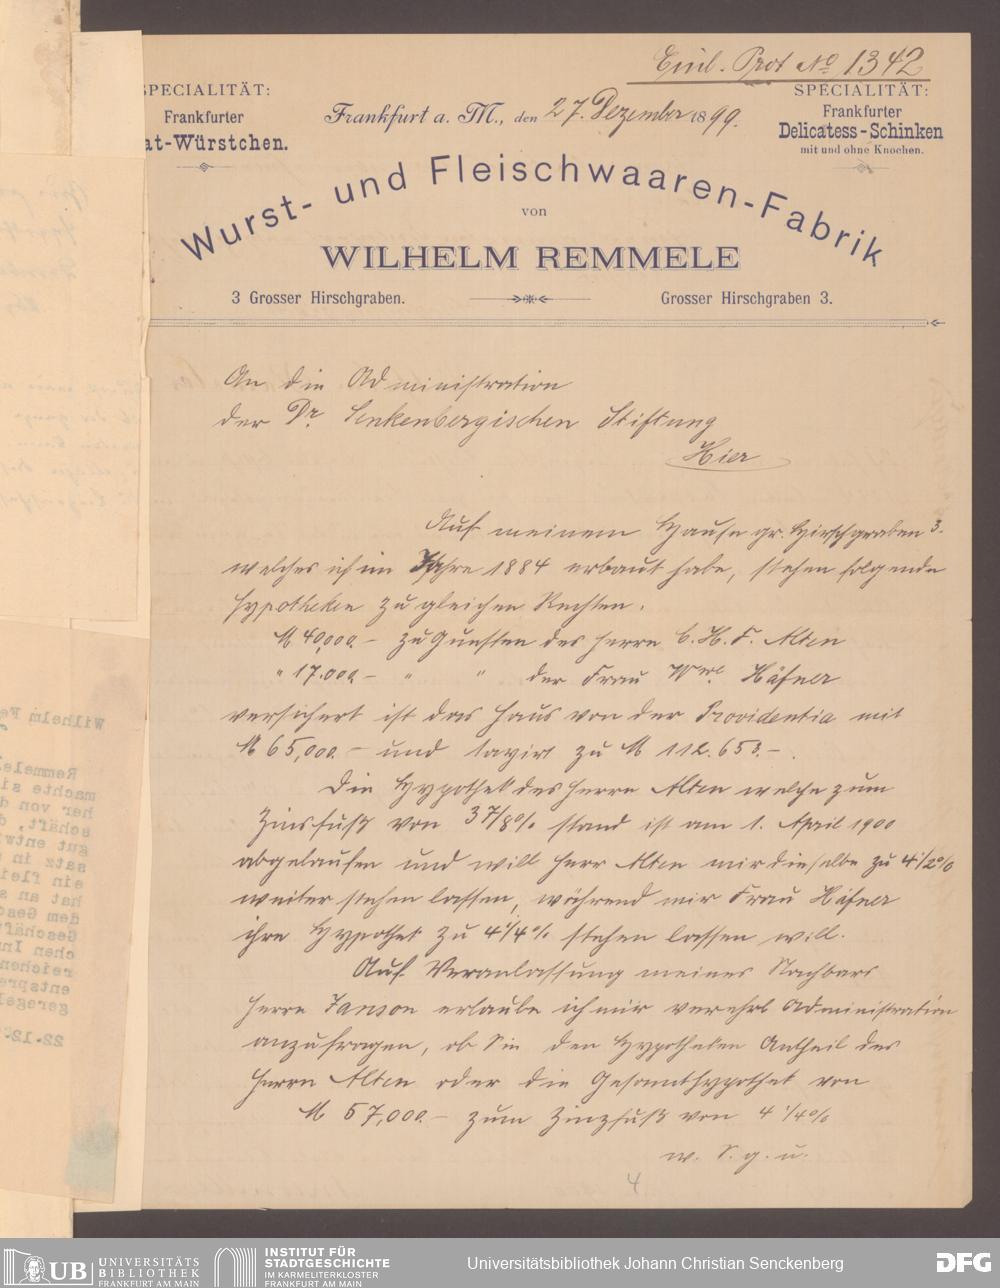 Einl. Prot No 1342
SPECIALITÄT:
Frankfurter
at-Würstchen.
Frankfurt a. M., den 27. Dezember 1899.
SPECIALITÄT:
Frankfurter
Delicatess-Schinken
mit und ohne Knochen.
Wurst- und Fleischwaaren-Fabrik
von
WILHELM REMMELE
3 Grosser Hirschgraben. Grosser Hirschgraben 3.
An die Administration
der Dr. Senkenbergischen Stiftung
Hier
Auf meinem Hause gr. Hirschgraben 3.
welches ich im Jahre 1884 erbaut habe, stehen folgende
Hypotheken zu gleichen Rechten.
M 40,000.- zu Gunsten des Herrn C. H. F. Alten
" 17.000.- " " der Frau Wwe. Häfner
versichert ist das Haus von der Providentia mit
M 65,000.- und taxirt zu M 112.653.-
Die Hypothek des Herrn Alten welche zum
Zinsfuß von 3 7/8% stand ist am 1. April 1900
abgelaufen und will Herr Alten mir dieselbe zu 4 1/2%
weiter stehen lassen, während mir Frau Häfner
ihre Hypothek zu 4 1/4% stehen lassen will.
Auf Veranlassung meines Nachbars
Herrn Janson erlaube ich mir verehrl Administration
anzufragen, ob Sie den Hypotheken Antheil des
Herrn Alten oder die Gesamthypothek von
M 57,000.- zum Zinzfuß von 4 1/4%
w. S. g. u.
4
Wilhelm
Remmele
machte si
her von d
schäft, d
gut entw
satz in
ein flei
hat an s
dem Gesc
Geschäf
chen In
reichen
entspre
geregel
22.12.
UB UNIVERSITÄTS
BIBLIOTHEK
FRANKFURT AM MAIN
INSTITUT FÜR
STADTGESCHICHTE
IM KARMELITERKLOSTER
FRANKFURT AM MAIN
Universitätsbibliothek Johann Christian Senckenberg
DFG